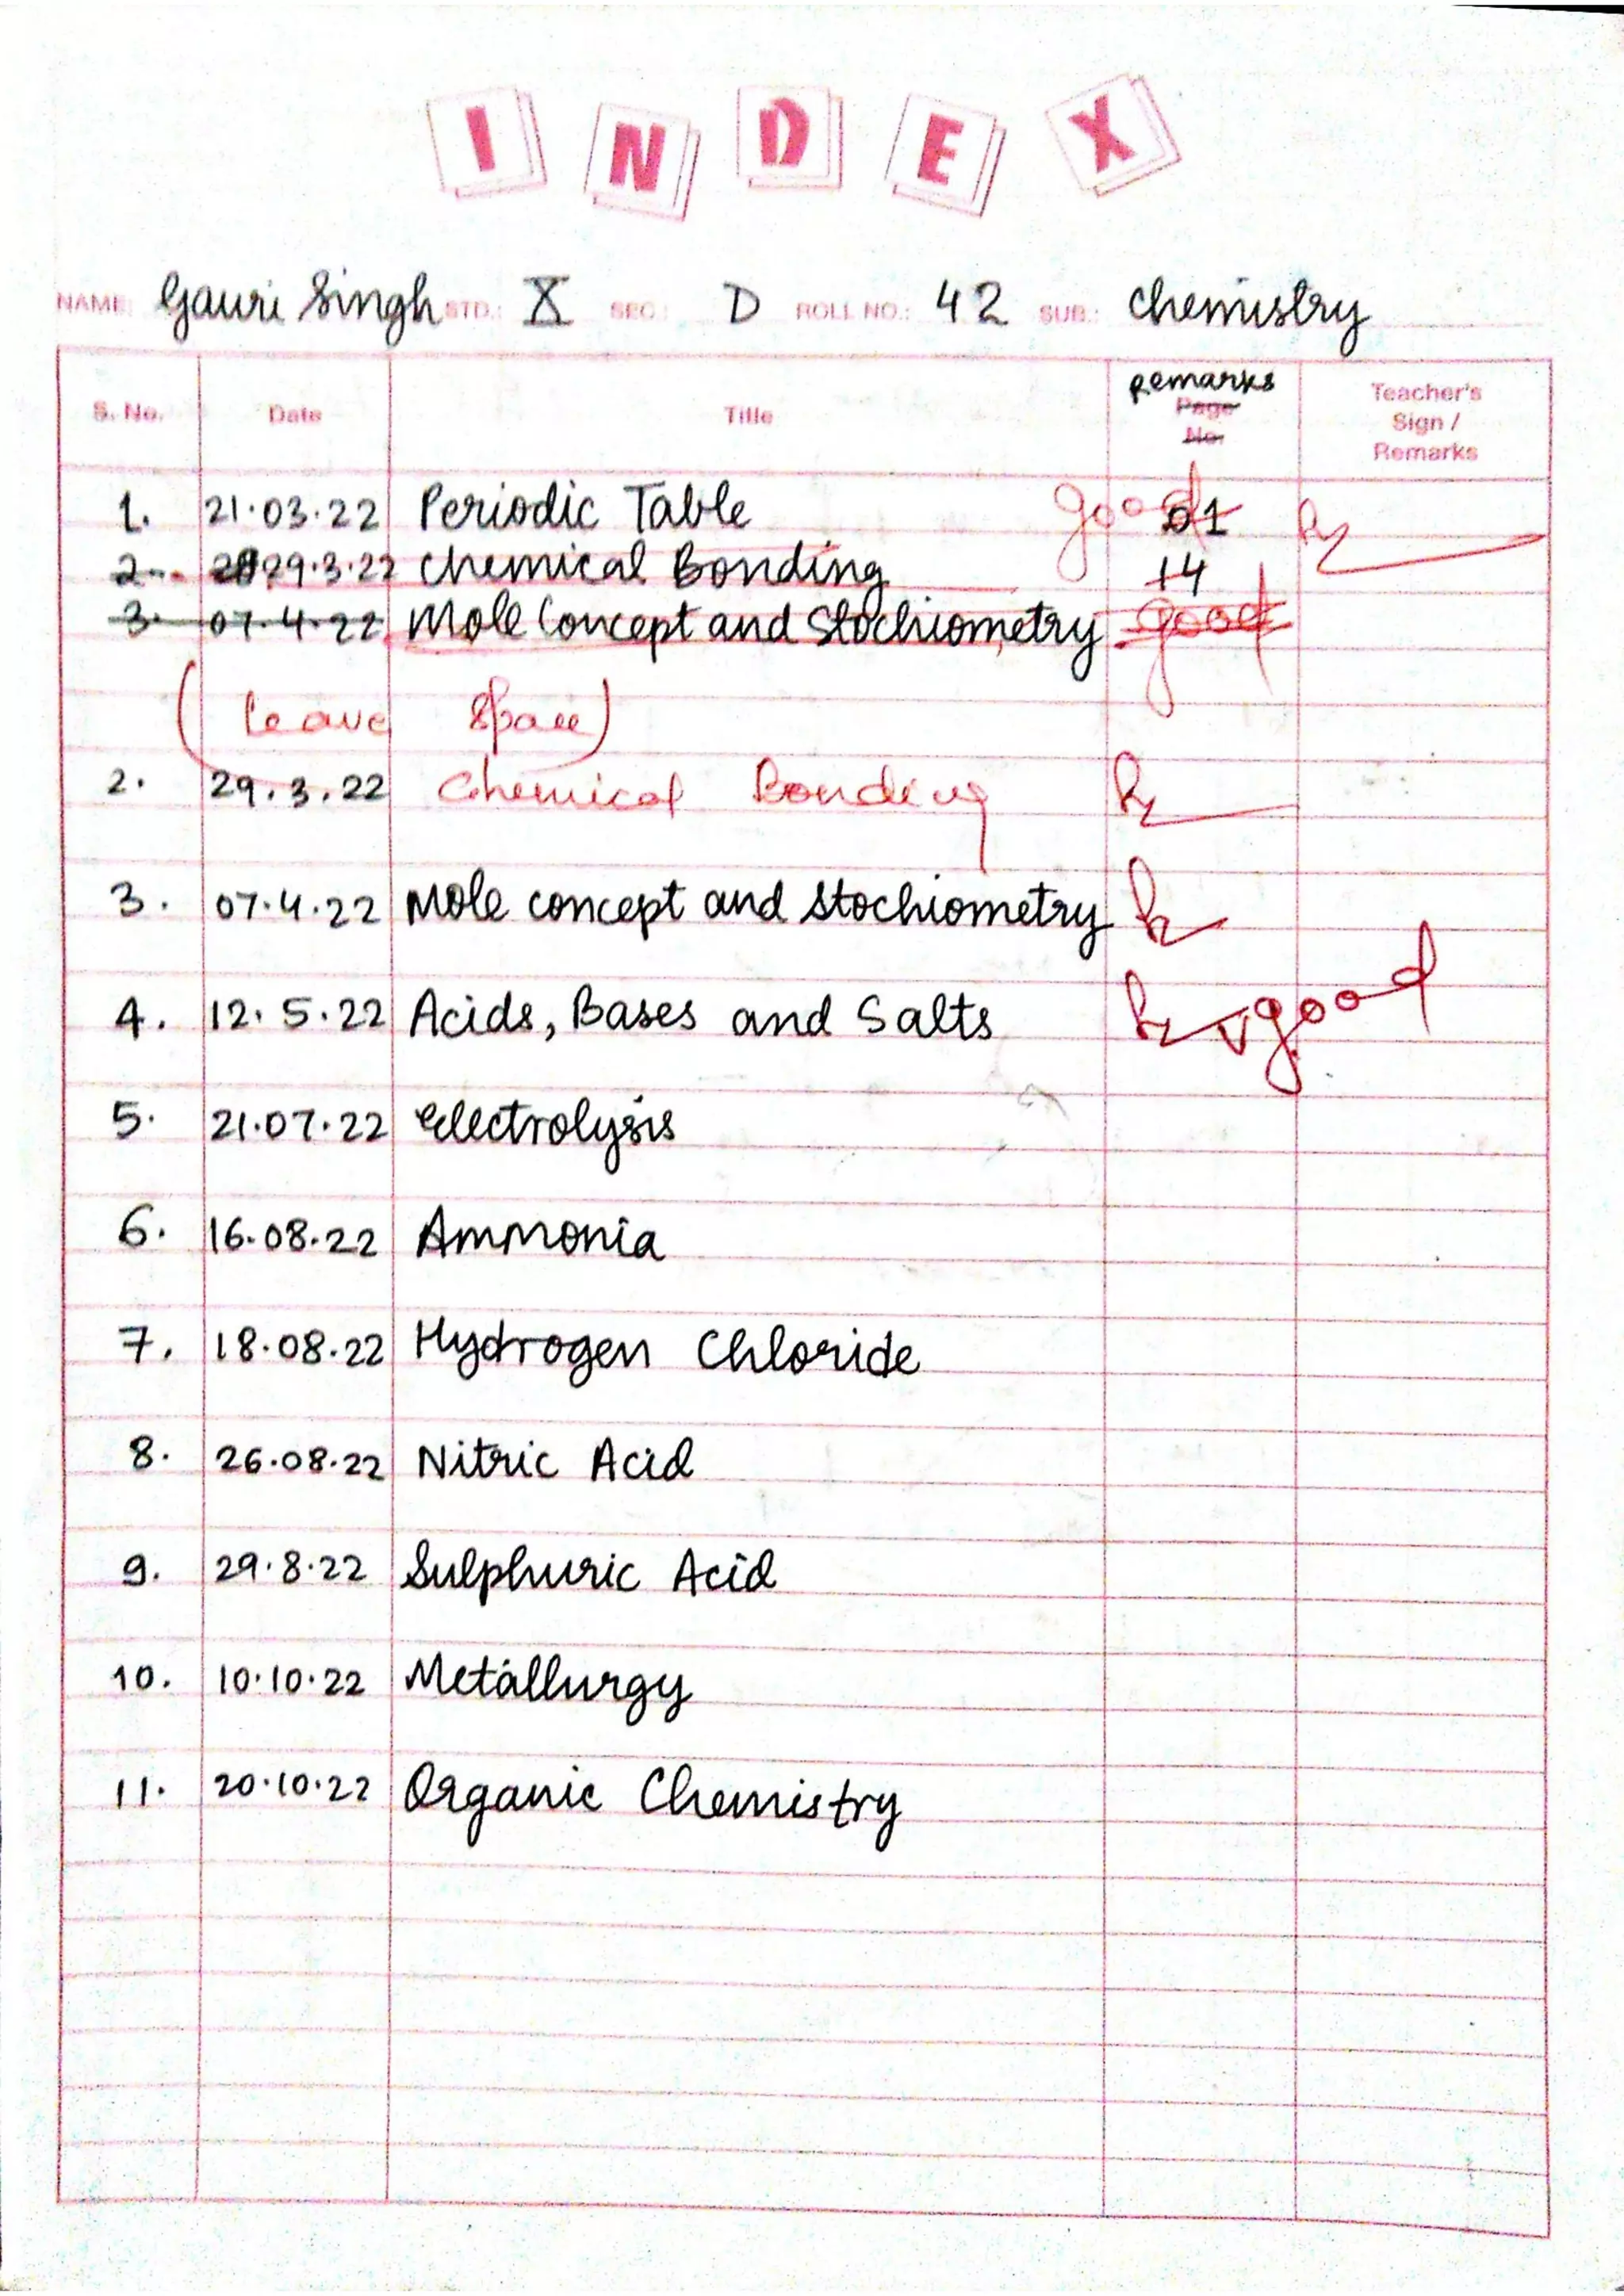 INDEX
NAME: Gauri Singh STD.: X SEC.: D ROLL NO.: 42 SUB.: Chemistry
S. No. Date Title remarks Page No. Teacher's Sign / Remarks
1. 21.03.22 Periodic Table good 01
2. 29.3.22 Chemical Bonding 14
3. 07.4.22 Mole Concept and Stochiometry good
(leave space)
2. 29.3.22 Chemical Bonding
3. 07.4.22 Mole concept and Stochiometry
4. 12.5.22 Acids, Bases and Salts vgood
5. 21.07.22 Electrolysis
6. 16.08.22 Ammonia
7. 18.08.22 Hydrogen Chloride
8. 26.08.22 Nitric Acid
9. 29.8.22 Sulphuric Acid
10. 10.10.22 Metallurgy
11. 20.10.22 Organic Chemistry